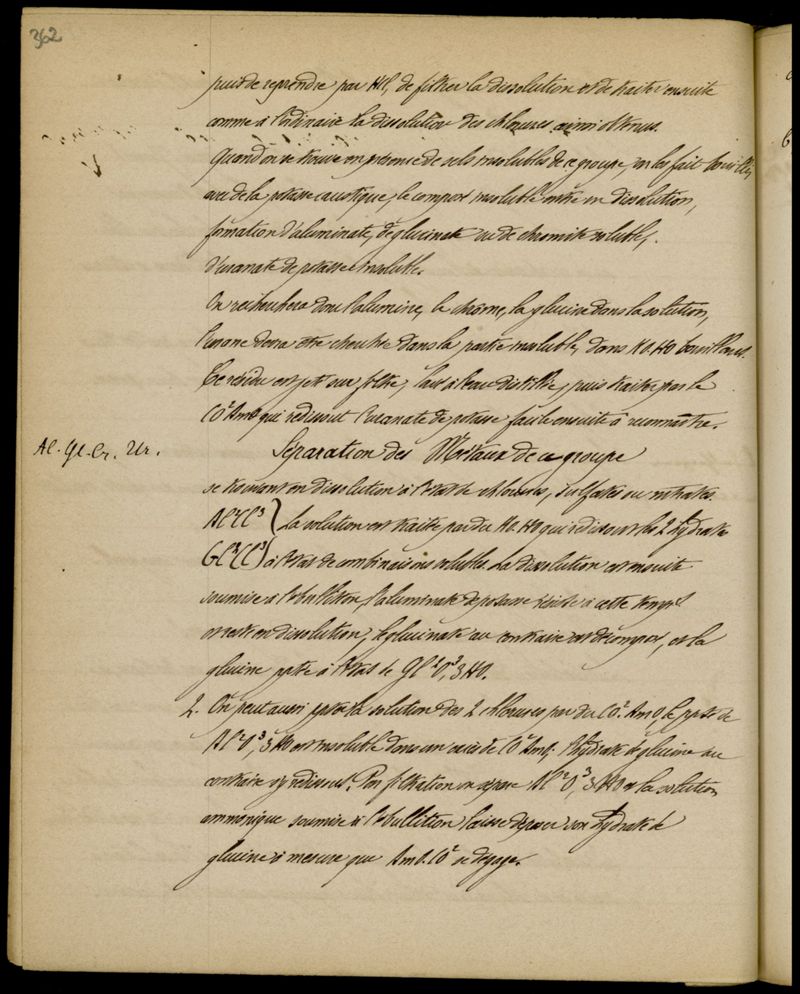 362
puis de reprendre par HCl, de filtrer la dissolution et de traiter ensuite
comme à l'ordinaire la dissolution des chlorures ainsi obtenus.
Quand on se trouve en présence de sels insolubles de ce groupe, on les fait bouillir
avec de la potasse caustique, le composé insoluble entre en dissolution,
formation d'aluminate, de glucinate ou de chromite soluble,
d'uranate de potasse insoluble.
On recherchera donc l'alumine, le chrôme, la glucine dans la solution,
l'urane devra être cherché dans la partie insoluble, dans KO.HO bouillant.
Ce résidu est jeté sur filtre, lavé à l'eau distillée, puis traité par le
CO² AmO qui redissout l'uranate de potasse facile ensuite à reconnaître.
Al. Gl. Cr. Ur.
Séparation des Métaux de ce groupe
se trouvant en dissolution à l'état de chlorures, sulfates ou nitrates.
Al²Cl³ } La solution est traitée par du KO.HO qui redissout les 2 hydrates
Gl²Cl³ } à l'état de combinaisons solubles. La dissolution est ensuite
soumise à l'ébullition, l'aluminate de potasse résiste à cette tempre
et reste en dissolution, le glucinate au contraire est décomposé, et la
glucine ppte à l'état de Gl²O³, 3HO.
2. On peut aussi ppter la solution des 2 chlorures par du CO² AmO, le ppté de
Al²O³, 3HO est insoluble dans un excès de CO² AmO; l'hydrate de glucine au
contraire s'y redissout. Par filtration on sépare Al²O³, 3HO et la solution
ammonique soumise à l'ébullition laisse déposer son hydrate de
glucine à mesure que AmO.CO² se dégage.